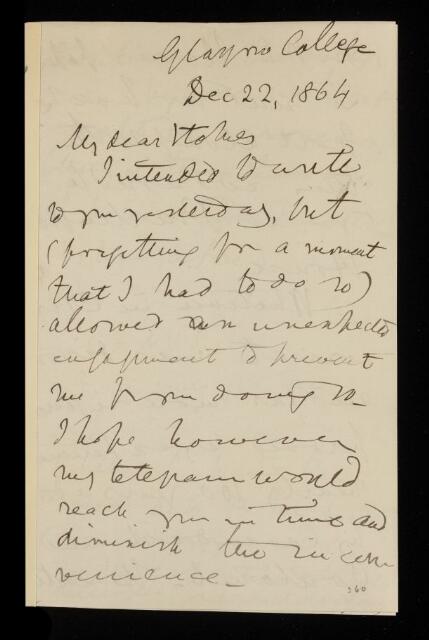 Glasgow College
Dec 22, 1864
My dear Stokes
I intended to write
to you yesterday, but
(forgetting for a moment
that I had to do so)
allowed an unexpected
engagement to prevent
me from doing so_
I hope however
my telegram would
reach you in time and
diminish the incon
venience_
360